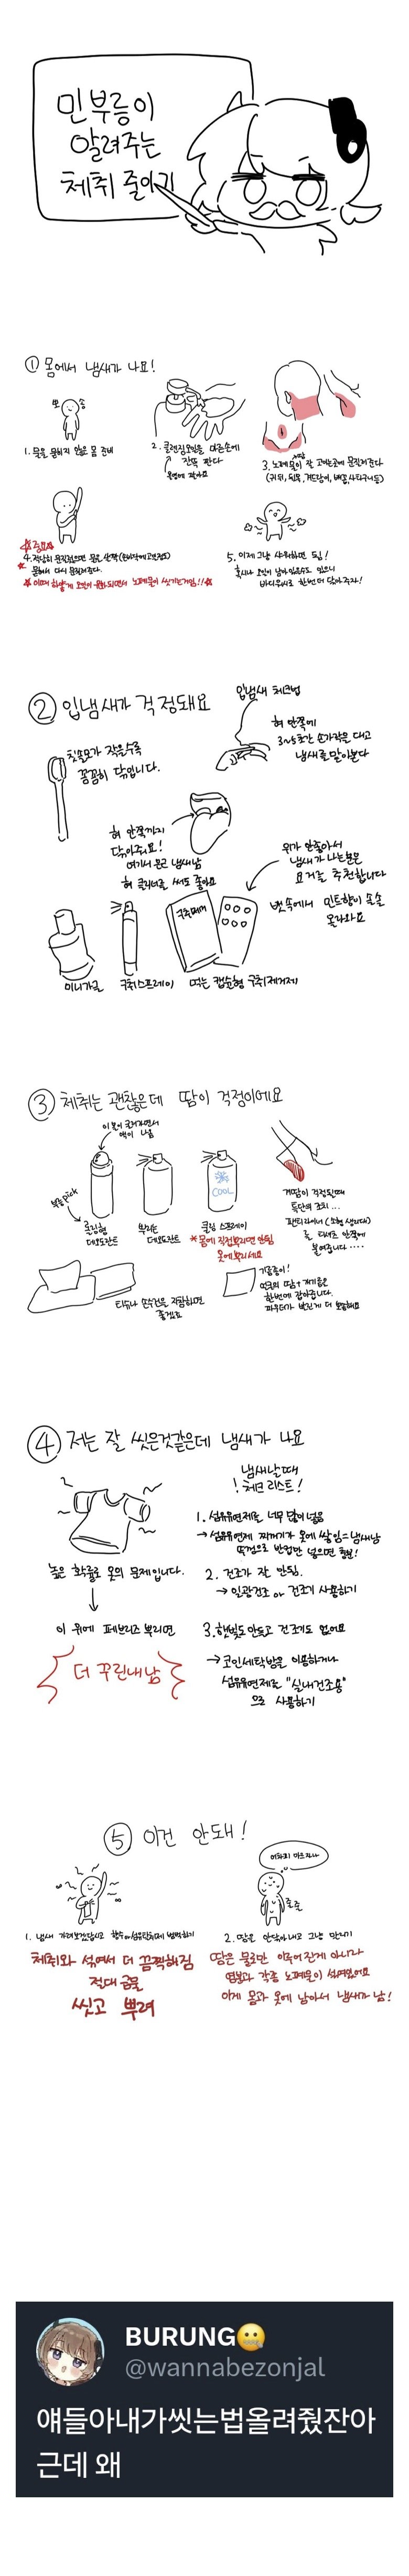 민부릉이
알려주는
체취 줄이기
① 몸에서 냄새가 나요!
뽀 송
1. 물을 묻히지 않은 몸 준비
2. 클렌징오일을 마른손에
잔뜩 짠다
3. 노폐물이 잘 고이는곳에 문질러준다
☆중요☆
4. 적당히 문질렀으면 물을 살짝
묻혀서 다시 문질러준다.
☆이때 하얗게 오일이 유화되면서 노폐물이 씻기는거임!!☆
5. 이제 그냥 샤워하면 됨!
혹시나 오일이 남아있을수도 있으니
바디워시로 한번더 닦아주자!
② 입냄새가 걱정돼요
입냄새 체크법
혀 안쪽에
3~5초간 손가락을 대고
냄새를 맡아본다
칫솔모가 작을수록
꼼꼼히 닦입니다.
혀 안쪽까지
닦아주세요!
여기서 온갖 냄새남
혀 클리너를 써도 좋아요
위가 안좋아서
냄새가 나는분은
요거를 추천합니다
뱃속에서 민트향이 솔솔
올라와요
구취제거
미니가글
구취스프레이
먹는 캡슐형 구취제거제
③ 체취는 괜찮은데 땀이 걱정이에요
이 볼이 굴러가면서
액이 나옴
뽀송 pick
롤링형
데오도란트
뿌리는
데오도란트
COOL
쿨링 스프레이
*몸에 직접뿌리면 안됨
옷에뿌리세요
겨땀이 걱정될때
특단의 조치...
팬티라이너 (소형 생리대)
를 티셔츠 안쪽에
붙여줍니다....
티슈나 손수건을 지참하면
좋겠죠
기름종이!
얼굴의 땀+개기름을
한번에 잡아줍니다.
파우더가 발린게 더 뽀송해요
④ 저는 잘 씻은것같은데 냄새가 나요
냄새날때
! 체크 리스트 !
높은 확률로 옷의 문제입니다.
↓
이 위에 페브리즈 뿌리면
더 꾸린내남
1. 섬유유연제를 너무 많이넣음
→ 섬유유연제 찌꺼기가 옷에 쌓임=냄새남
뚜껑으로 반컵만 넣으면 충분!
2. 건조가 잘 안됨.
→ 일광건조 or 건조기 사용하기
3. 햇빛도 안들고 건조기도 없어요
→ 코인세탁방을 이용하거나
섬유유연제를 "실내건조용"
으로 사용하기
⑤ 이건 안돼!
1. 냄새 가려보겠답시고 향수or섬유탈취제 범벅하기
체취와 섞여서 더 끔찍해짐
절대 금물
씻고 뿌려
어차피 마르자나
줄줄
2. 땀을 안닦아내고 그냥 말리기
땀은 물로만 이루어진게 아니라
염분과 각종 노폐물이 섞여있어요
이게 몸과 옷에 남아서 냄새가 남!
BURUNG🤐
@wannabezonjal
얘들아내가씻는법올려줬잖아
근데 왜